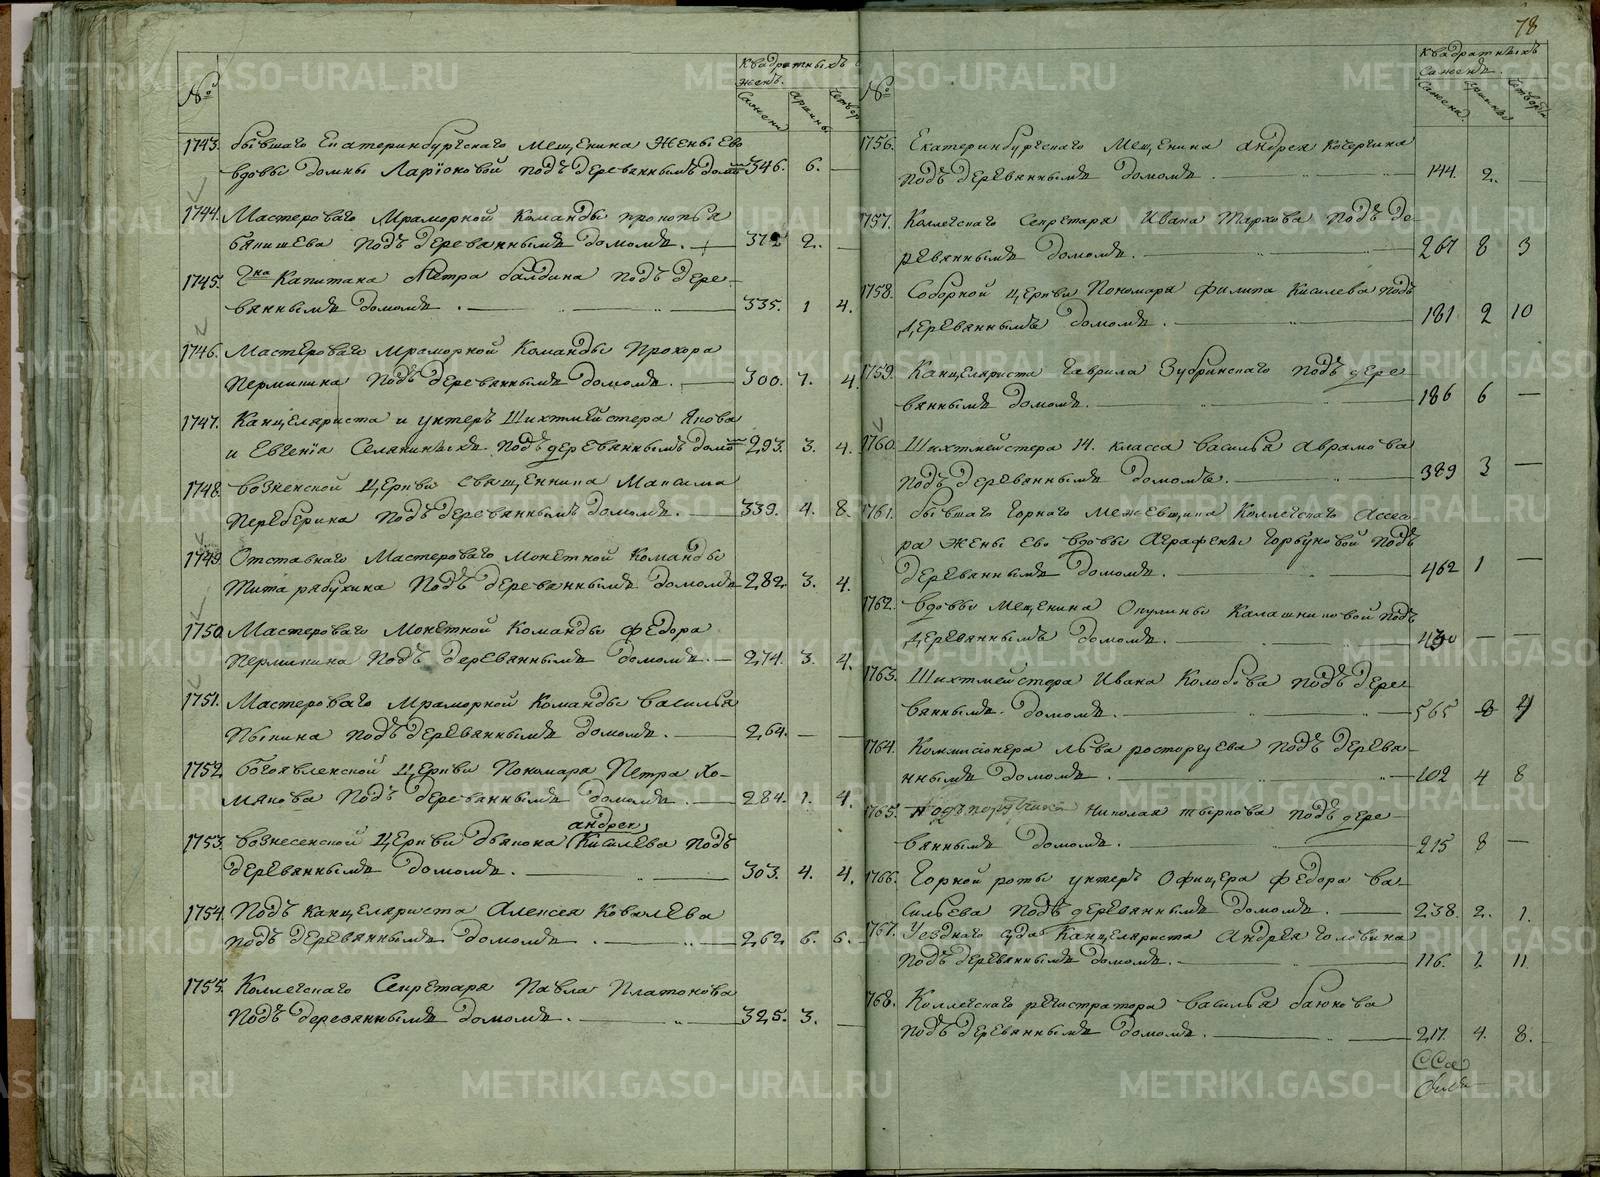 78
№
Квадратныхъ са
женъ.
Сажени
Аршины
Четвер
1743. бывшаго Екатеринбургскаго мещенина жены Ево
вдовы домны Ларионовой подъ деревяннымъ домомъ 346. 6. —
1744. Мастероваго мраморной команды прокопья
подъ деревяннымъ домомъ. — 372 2. —
1745. Капитана Петра балдина подъ дере-
вяннымъ домомъ. — 335. 1 4.
1746. Мастероваго мраморной команды Прохора
перминина подъ деревяннымъ домомъ. — 300. 7. 4.
1747. Канцеляриста и унтеръ Шихтмейстера Якова
и Евгенiя подъ деревяннымъ домо 293. 3. 4.
1748. вознесенской церкви священника Максима
Переберина подъ деревяннымъ домомъ. — 339. 4. 8.
1749. Отставнаго мастероваго монетной команды
Тита рябухина подъ деревяннымъ домомъ 282. 3. 4.
1750. Мастероваго монетной команды федора
перминина подъ деревяннымъ домомъ. — 274. 3. 4.
1751. Мастероваго мраморной команды василья
подъ деревяннымъ домомъ. — 264. — —
1752. богоявленской церкви пономара Петра Хо-
мякова подъ деревяннымъ домомъ. — 284. 1. 4.
андрея
1753. вознесенской церкви дьякона Киселева подъ
деревяннымъ домомъ. — 303. 4. 4.
1754. Подъ канцеляриста Алексея Ковалева
подъ деревяннымъ домомъ. — 262. 6. 6.
1755. Коллегскаго Секретаря Павла Платонова
подъ деревяннымъ домомъ. — 325. 3. —
№
Квадратныхъ
Саженъ.
Сажени.
Аршины
Четверти
1756. Екатеринбургскаго мещенина андрея кочергина
подъ деревяннымъ домомъ. — 144. 2.
1757. Коллегскаго Секретаря Ивана Тархова подъ де-
ревяннымъ домомъ. — 267 8 3
1758. Соборной церкви Пономаря филипа Киселева подъ
деревяннымъ домомъ. — 181 2 10
1759. Канцеляриста гаврила Зубринскаго подъ дере-
вяннымъ домомъ. — 186 6 —
1760. Шихтмейстера 14. класса василья аврамова
подъ деревяннымъ домомъ. — 389 3 —
1761. бывшаго горнаго межевщика коллегскаго ассесо
ра жены ево вдовы аграфены горбуновой подъ
деревяннымъ домомъ. — 462 1 —
1762. вдовы мещенина Калашниковой подъ
деревяннымъ домомъ. — — —
1763. Шихтмейстера Ивана Колобова подъ дере
вяннымъ домомъ. — 565 4
1764. Коммисiонера льва расторгуева подъ деревя-
ннымъ домомъ. — 102 4 8
1765. Николая подъ дере-
вяннымъ домомъ. — 215 8 —
1766. горной роты унтеръ офицера федора ва-
сильева подъ деревяннымъ домомъ. — 238. 2. 1.
1767. Уезднаго суда канцеляриста андрея головина
подъ деревяннымъ домомъ. — 116. 1. 11.
1768. Коллегскаго регистратора василья баюкова
подъ деревяннымъ домомъ. — 217. 4. 8.
METRIKI.GASO-URAL.RU